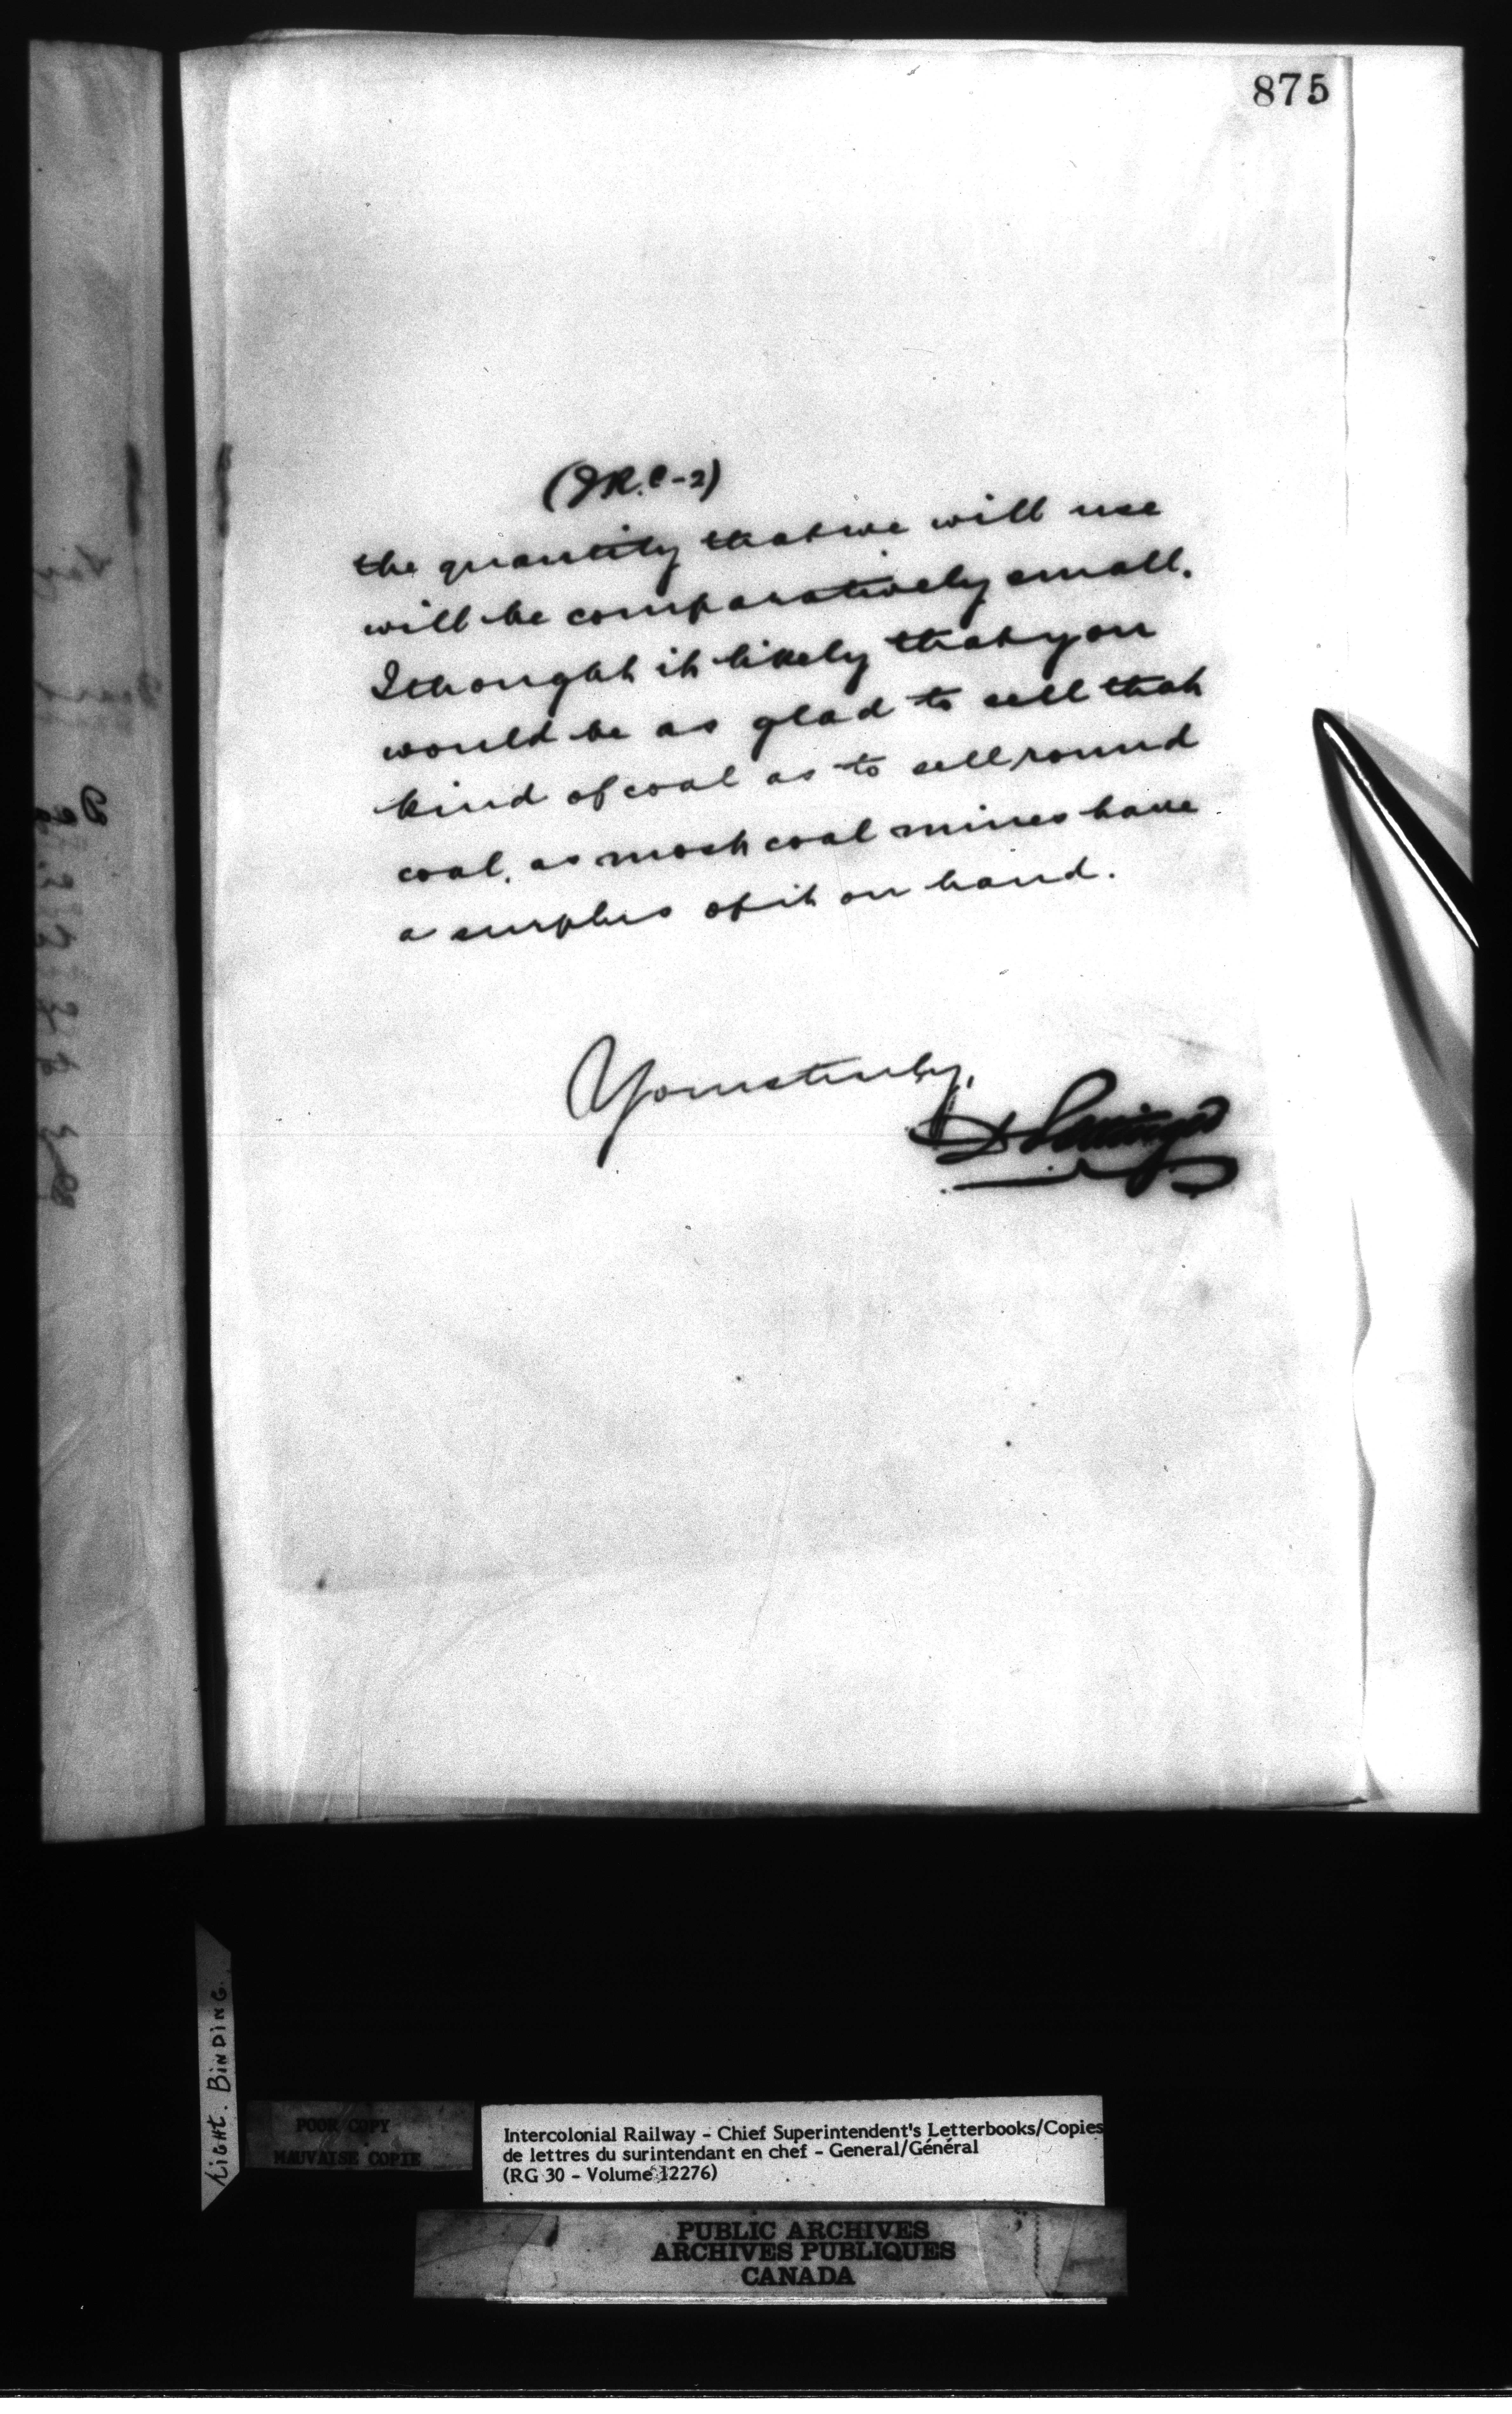 875
(J.R.C-2)
the quantity that we will use
will be comparatively small.
I thought it likely that you
would be as glad to sell that
kind of coal as to sell round
coal, as most coal mines have
a surplus of it on hand.
Yours truly,
D Pottinger
TIGHT. BINDING.
POOR COPY
MAUVAISE COPIE
Intercolonial Railway - Chief Superintendent's Letterbooks/Copies
de lettres du surintendant en chef - General/Général
(RG 30 - Volume 12276)
PUBLIC ARCHIVES
ARCHIVES PUBLIQUES
CANADA